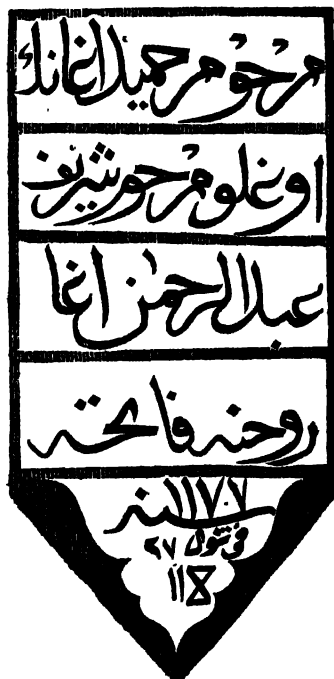 مرحوم حميد اغانك
اوغلو مرحوم شريف
عبد الرحمن اغا
روحنه فاتحه
سنه
في ٢٧